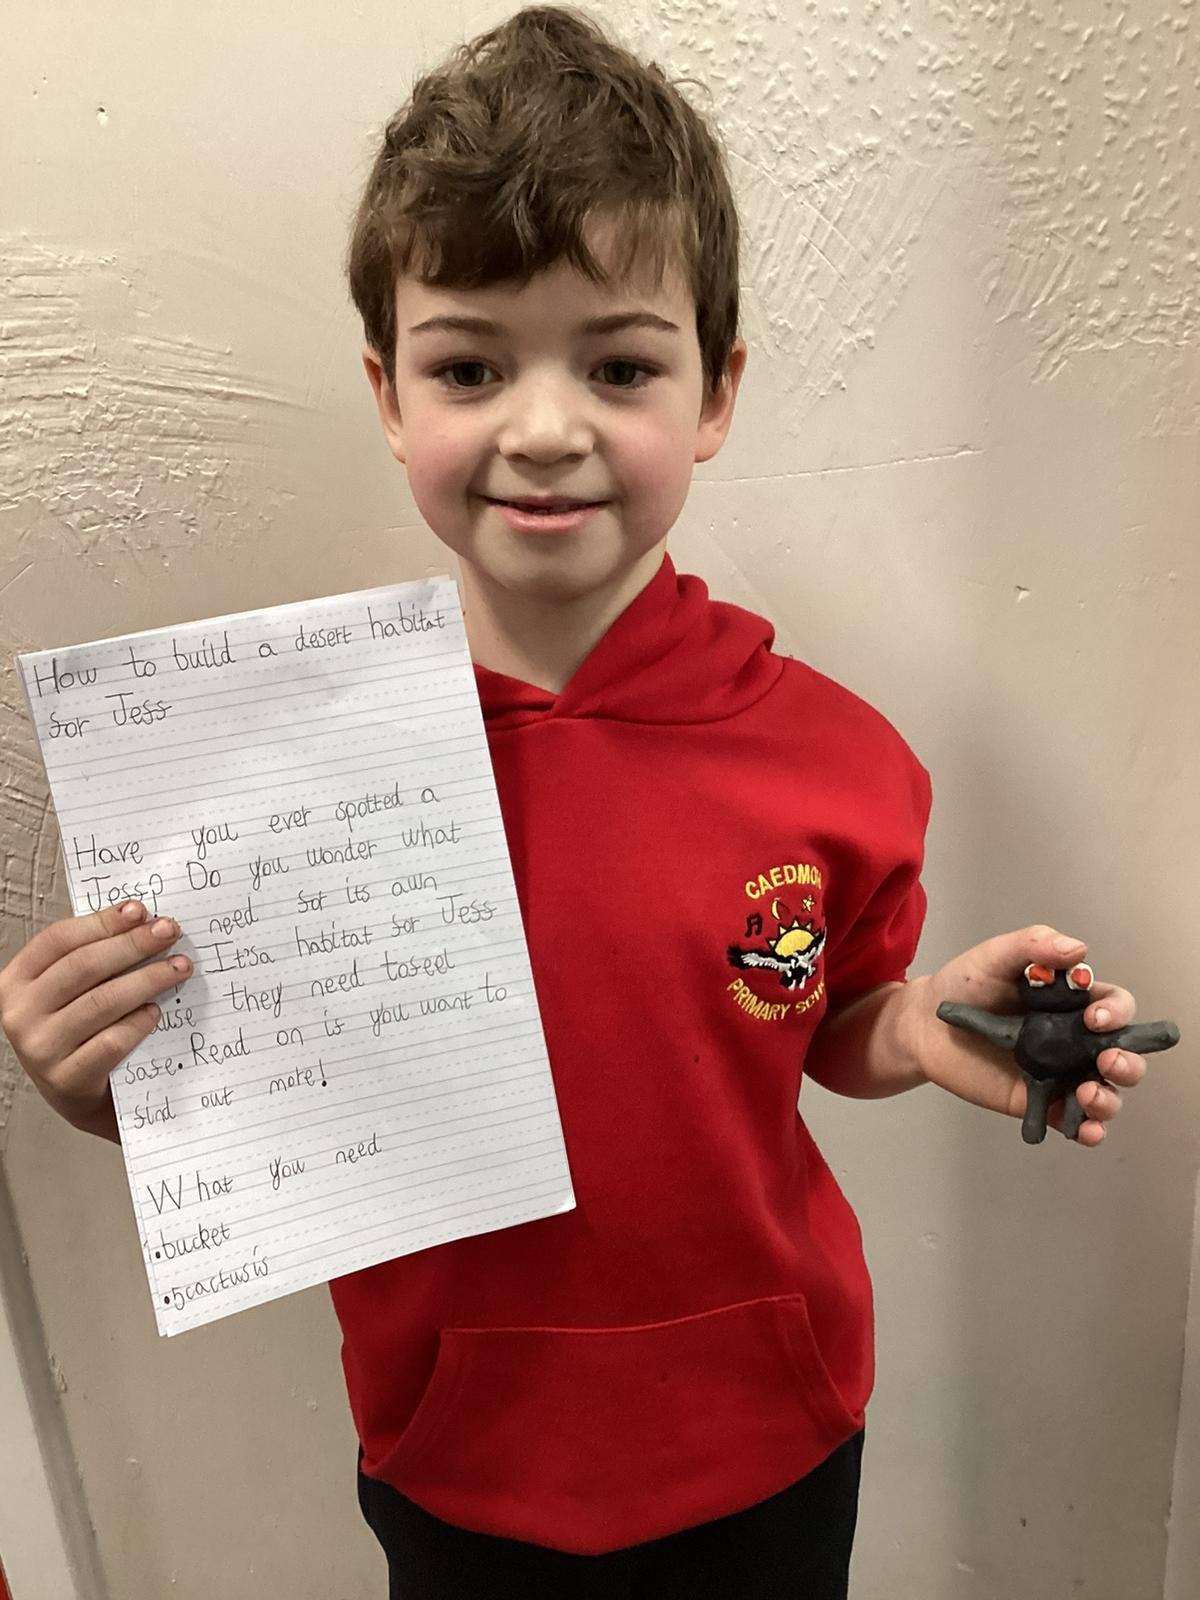 How to build a desert habitat
for Jess
Have you ever spotted a
Jess? Do you wonder what
need for its awn
It'sa habitat for Jess
they need tofeel
safe. Read on if you want to
find out more!
What you need
•bucket
•5cactusis
CAEDMON
PRIMARY